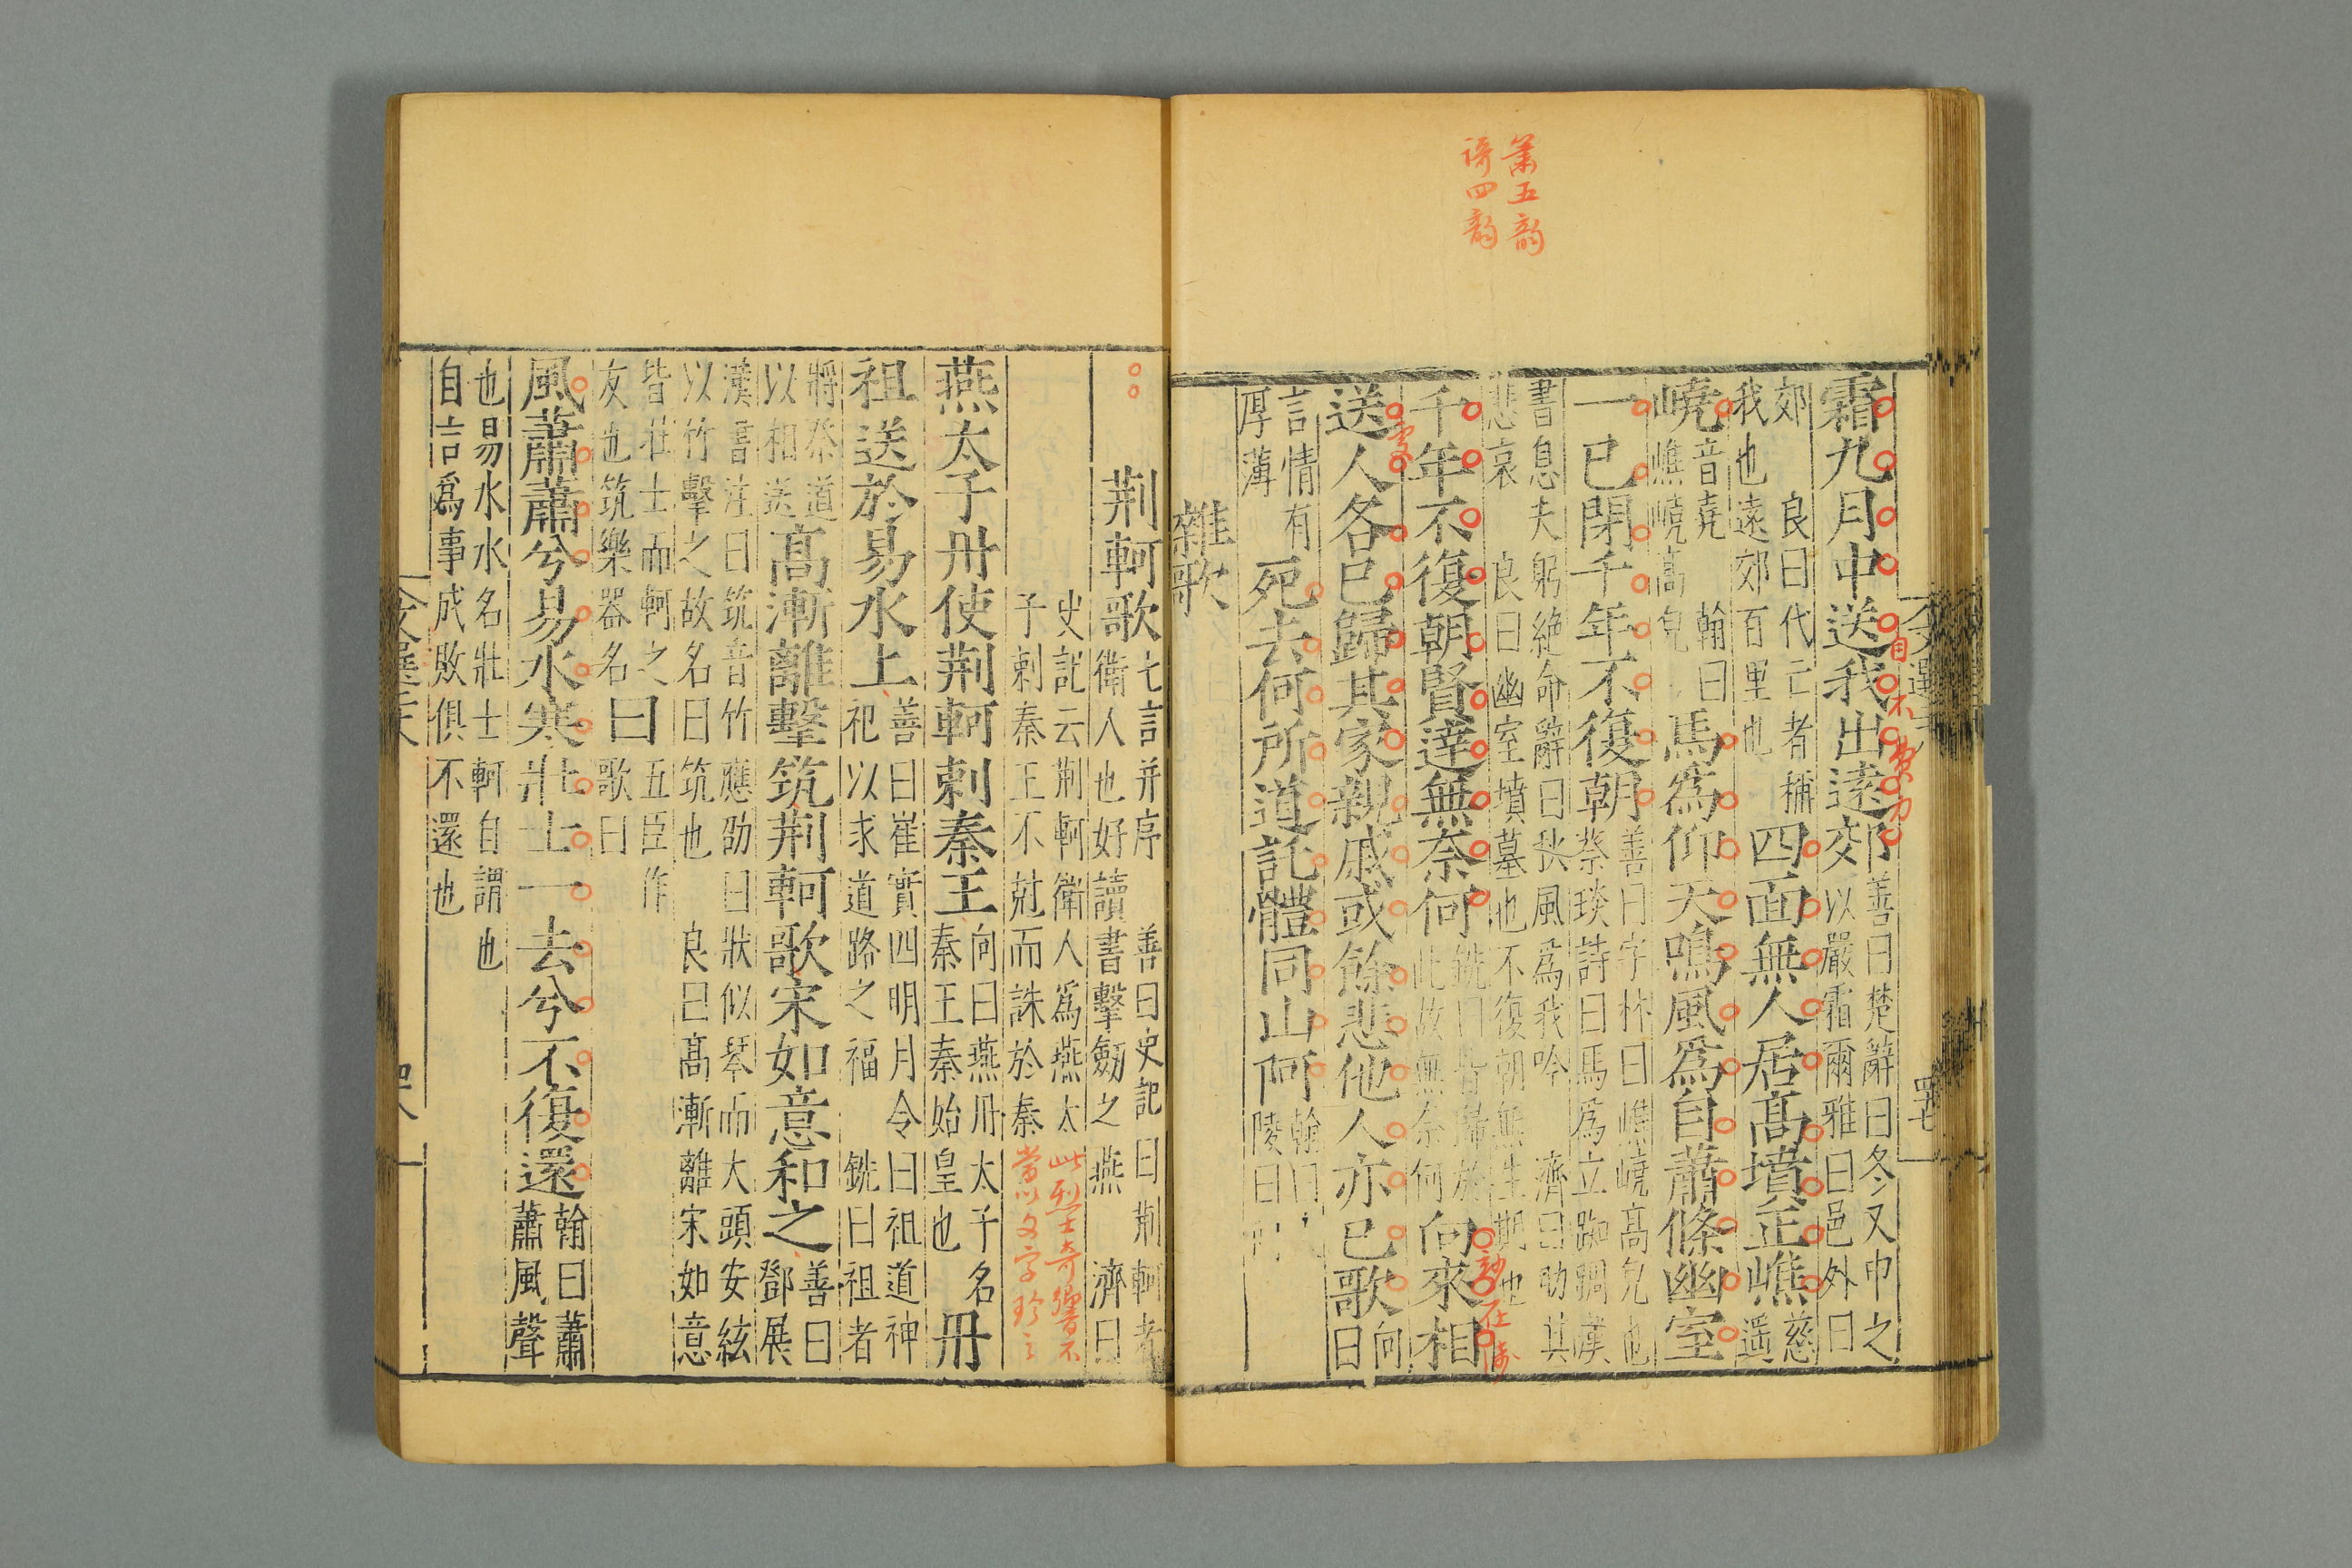 蕭五韻
奇四韻
霜九月中送我出遠郊善曰楚辭曰冬又申之
以嚴霜爾雅曰邑外曰
郊　良曰代亡者稱
我也遠郊百里也四面無人居高墳正嶣慈
遥
嶢音堯　翰曰
嶣嶢高皃馬爲仰天鳴風爲自蕭條幽室
一已閉千年不復朝善曰字林曰嶣嶢高皃也
蔡琰詩曰馬爲立踟蹰漢
書息夫躬絶命辭曰秋風爲我吟　濟曰助其
悲哀　良曰幽室墳墓也不復朝無生期也
千年不復朝賢達無奈何銑曰皆歸於
此故無奈何向來相
送人各已歸其家親戚或餘悲他人亦已歌向
曰
言情有
厚薄死去何所道託體同山阿翰曰
陵曰阿
雜歌
荆軻歌七言并序　善曰史記曰荆軻者
衛人也好讀書擊劒之燕　濟曰
史記云荆軻衛人爲燕太
子刺秦王不尅而誅於秦
此烈士奇響不
當以文字珍之
燕太子丹使荆軻刺秦王向曰燕丹太子名
秦王秦始皇也丹
祖送於易水上善曰崔寔四明月令曰祖道神
祀以求道路之福　銑曰祖者
將祭道
以相送高漸離擊筑荆軻歌宋如意和之善曰
鄧展
漢書注曰筑音竹應劭曰狀似琴而大頭安絃
以竹擊之故名曰筑也　良曰高漸離宋如意
皆壯士而軻之
友也筑樂器名曰五臣作
歌曰
風蕭蕭兮易水寒壯士一去兮不復還翰曰蕭
蕭風聲
也易水水名壯士軻自謂也
自言爲事成敗俱不還也